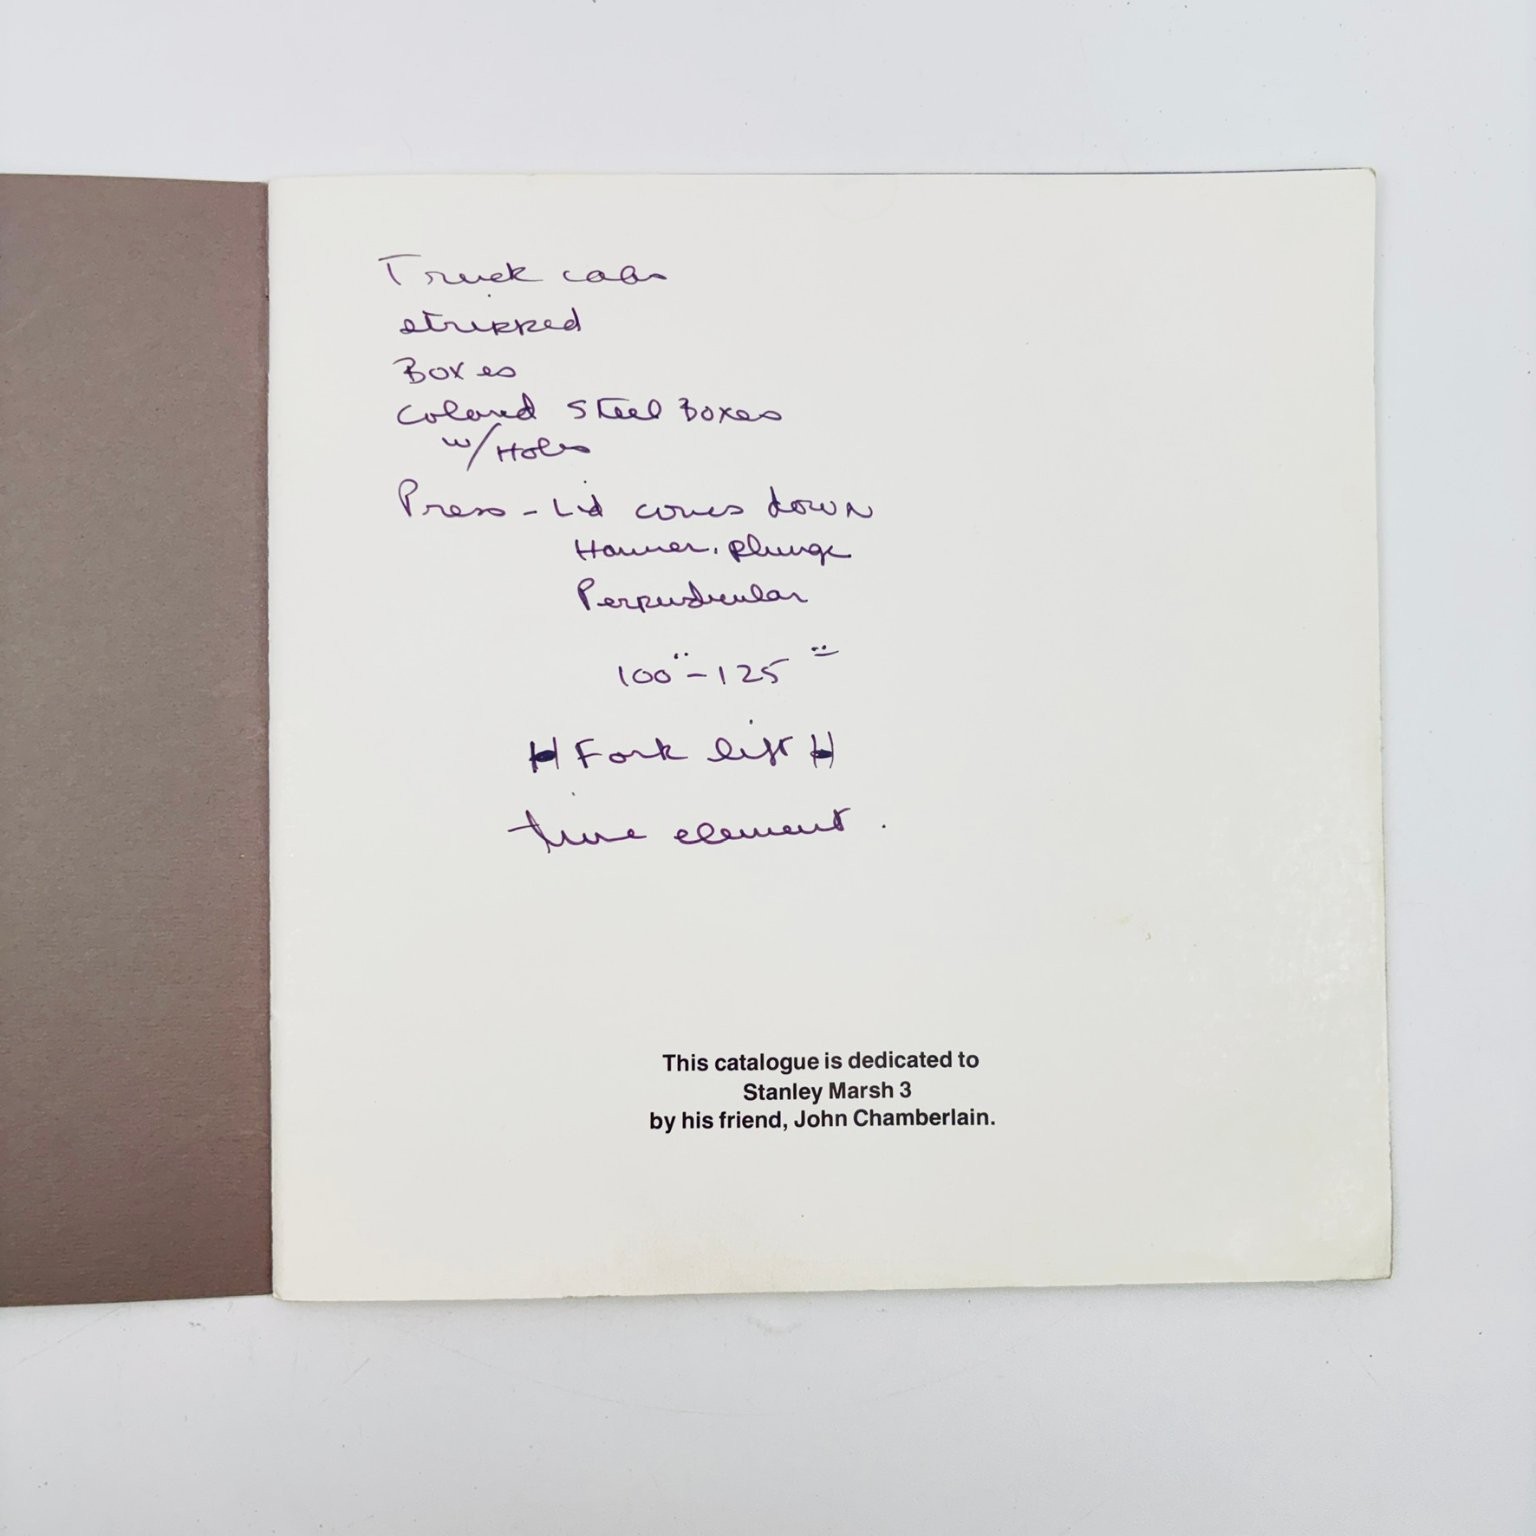 Truck cabs
stripped
Boxes
colored Steel Boxes
w/Holes
Press - Lid comes down
Hammer, plunge
Perpendicular
100" - 125"
H Fork lift H
time element.
This catalogue is dedicated to
Stanley Marsh 3
by his friend, John Chamberlain.